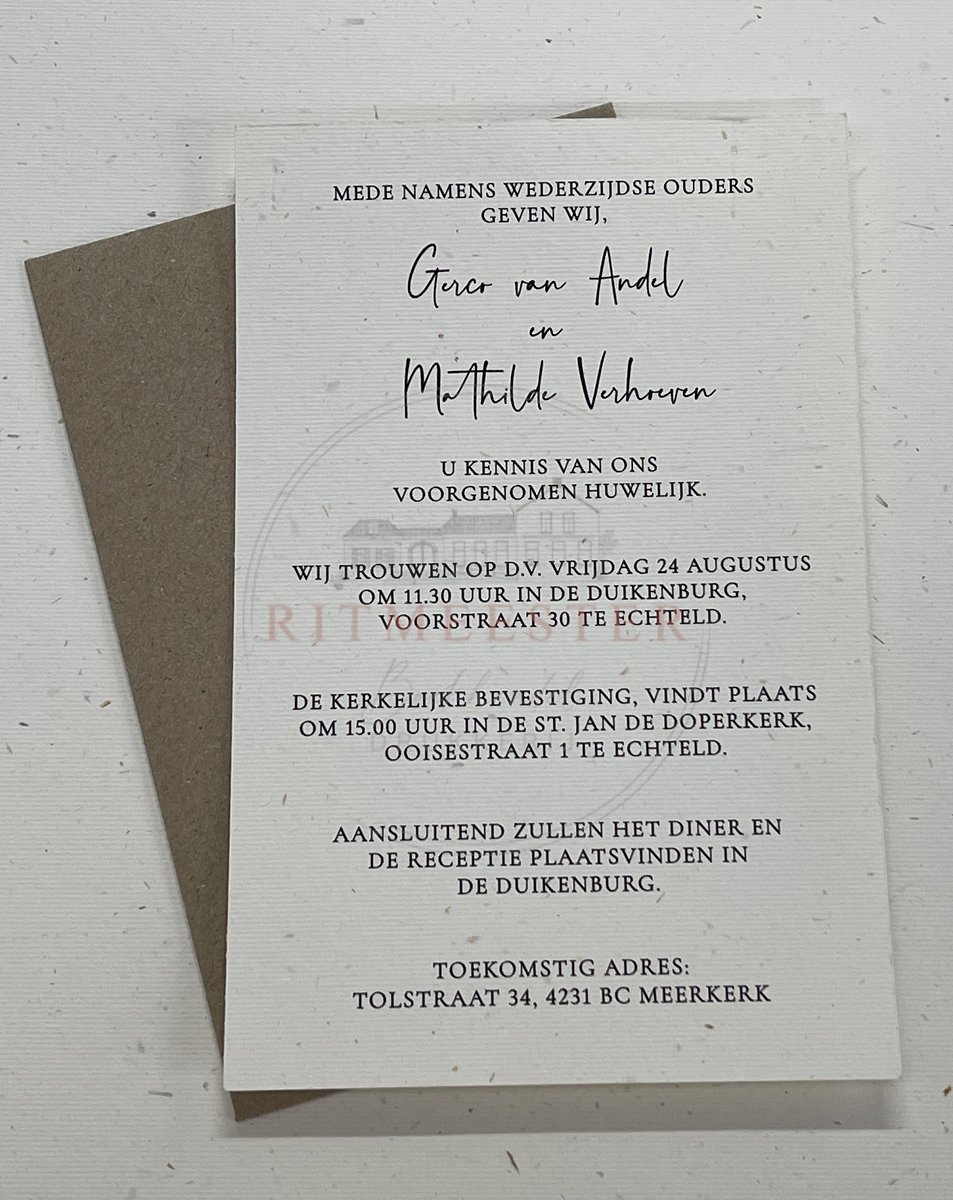 MEDE NAMENS WEDERZIJDSE OUDERS
GEVEN WIJ,
Gerco van Andel
en
Mathilde Verhoeven
U KENNIS VAN ONS
VOORGENOMEN HUWELIJK.
WIJ TROUWEN OP D.V. VRIJDAG 24 AUGUSTUS
OM 11.30 UUR IN DE DUIKENBURG,
RITMEESTER
VOORSTRAAT 30 TE ECHTELD.
DE KERKELIJKE BEVESTIGING, VINDT PLAATS
OM 15.00 UUR IN DE ST. JAN DE DOPERKERK,
OOISESTRAAT 1 TE ECHTELD.
AANSLUITEND ZULLEN HET DINER EN
DE RECEPTIE PLAATSVINDEN IN
DE DUIKENBURG.
TOEKOMSTIG ADRES:
TOLSTRAAT 34, 4231 BC MEERKERK